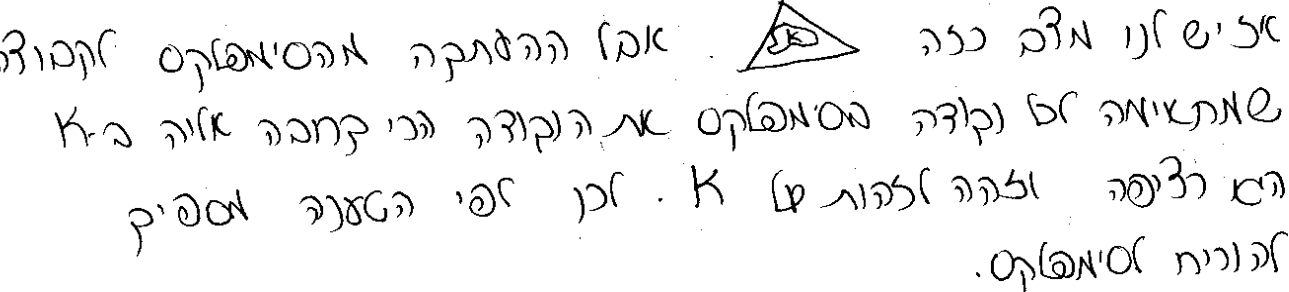 אז יש לנו מצב כזה K. אבל ההעתקה מהסימפלקס לקבוצה
שמתאימה לכל נקודה בסימפלקס את הנקודה הכי קרובה אליה ב-K
היא רציפה וזהה לזהות על K. לכן לפי הטענה מספיק
להוכיח לסימפלקס.